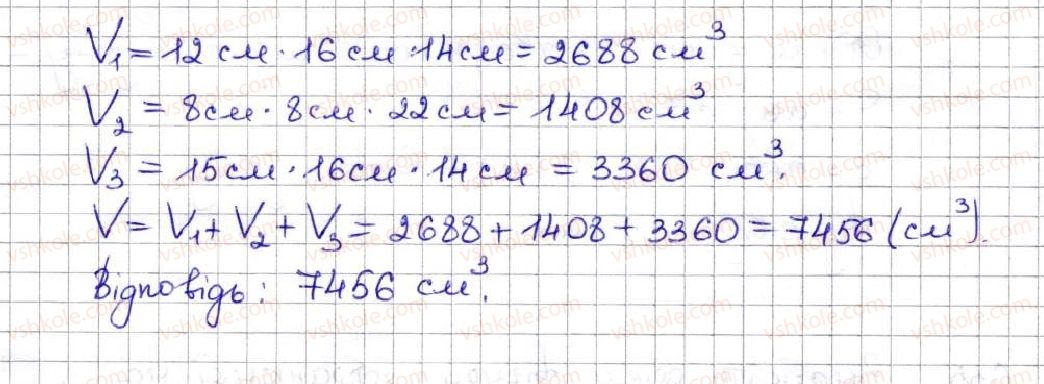 V₁ = 12 см · 16 см · 14 см = 2688 см³
V₂ = 8 см · 8 см · 22 см = 1408 см³
V₃ = 15 см · 16 см · 14 см = 3360 см³.
V = V₁ + V₂ + V₃ = 2688 + 1408 + 3360 = 7456 (см³).
Відповідь: 7456 см³.